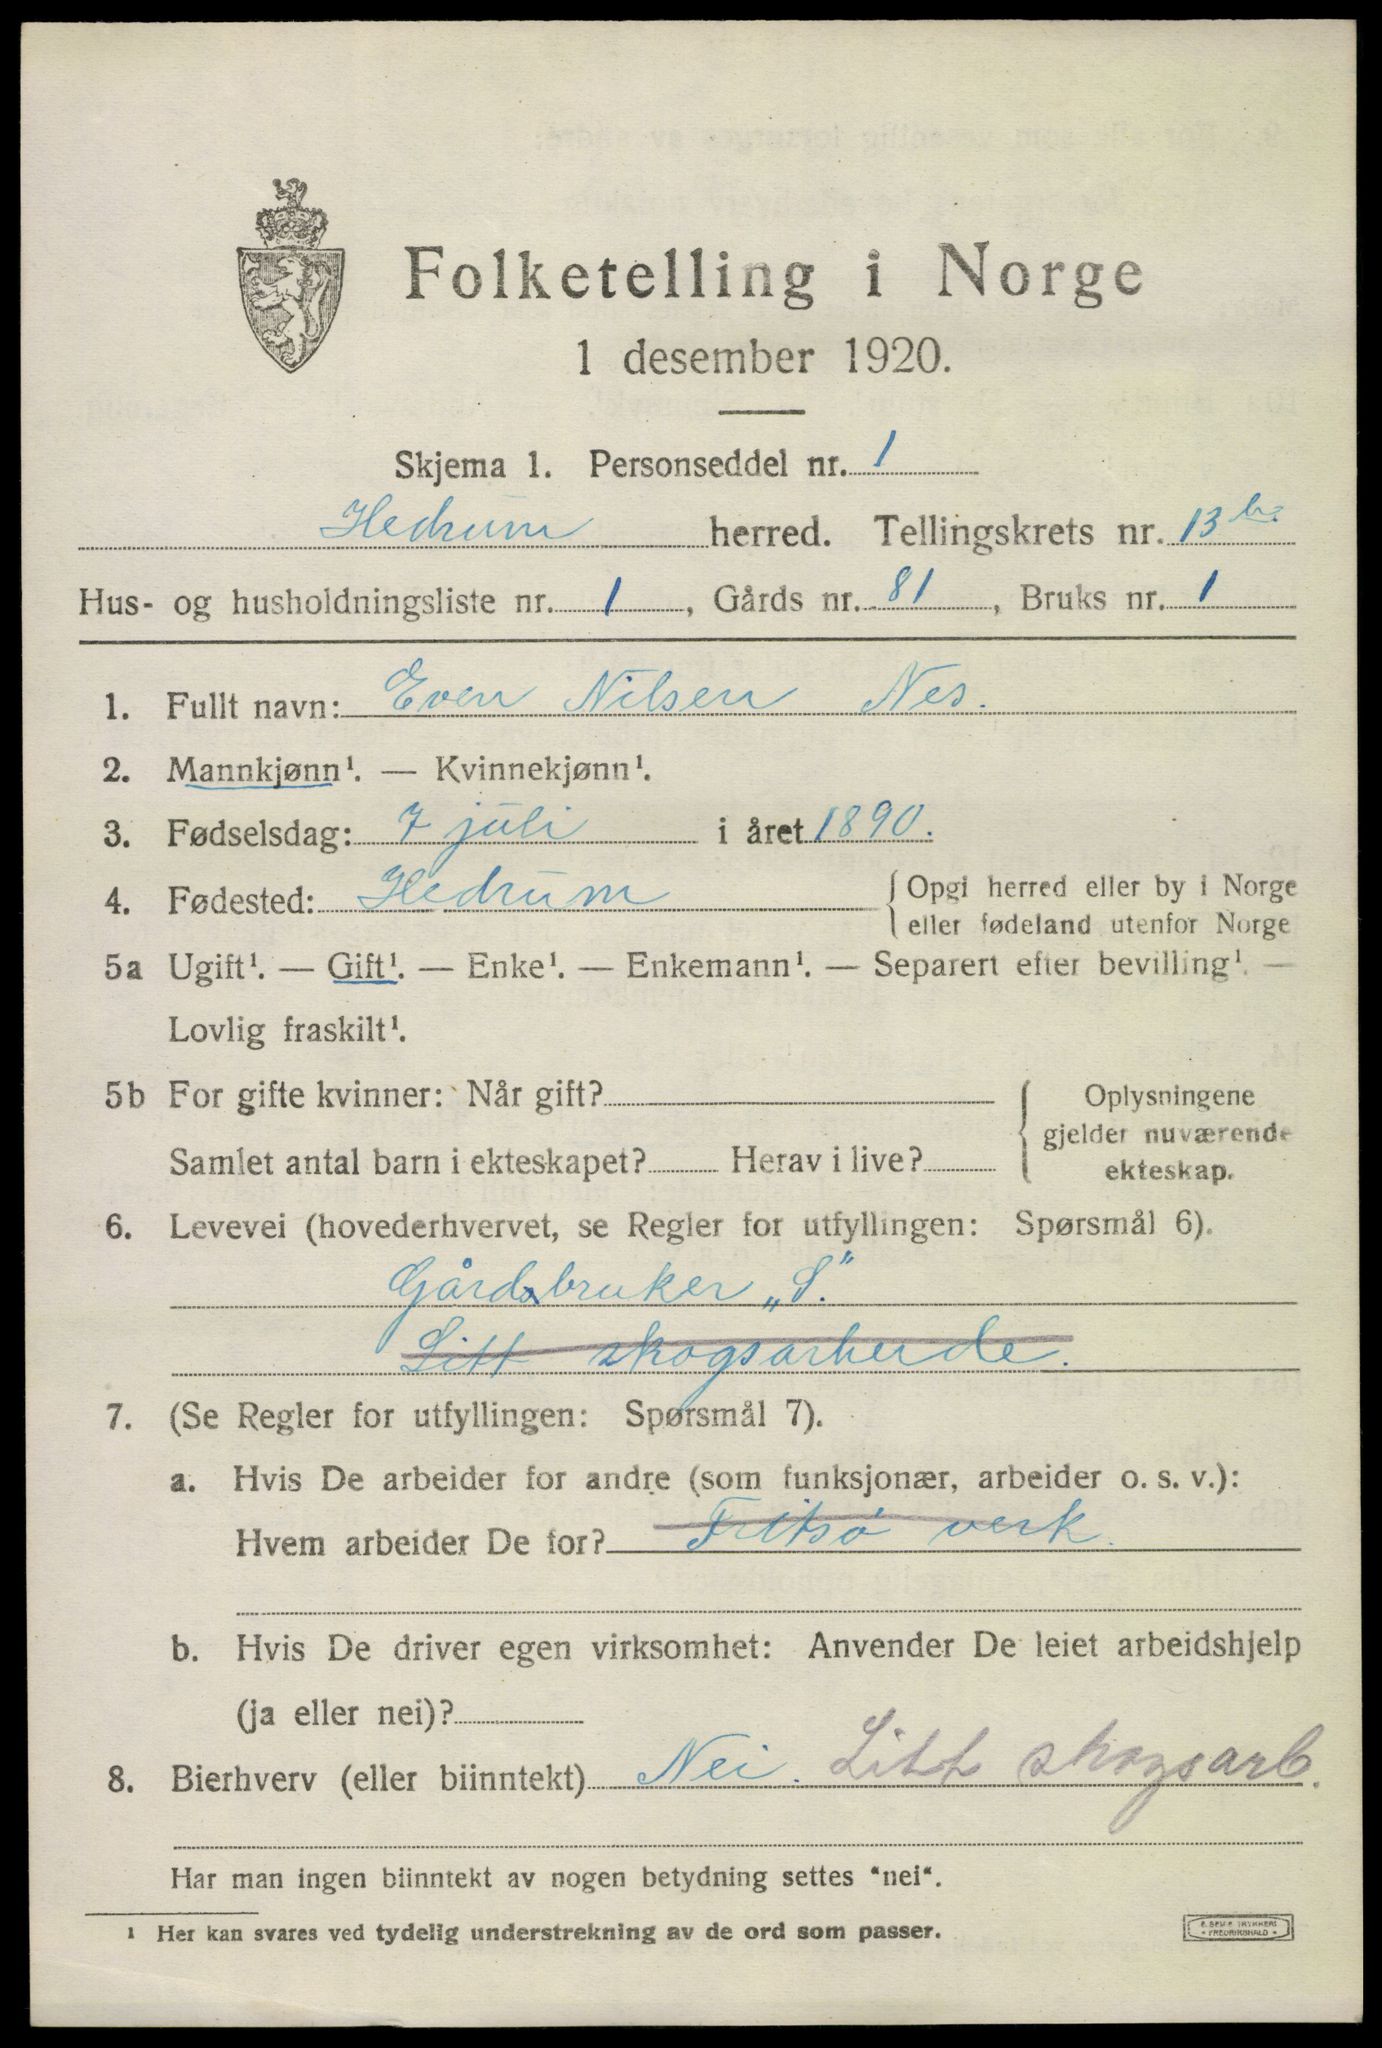 Folketelling i Norge
1 desember 1920.
Skjema 1. Personseddel nr. 1
Hedrum herred. Tellingskrets nr. 13
Hus- og husholdningsliste nr. 1, Gårds nr. 81, Bruks nr. 1
1. Fullt navn: Even Nilsen Nes.
2. Mannkjønn¹. — Kvinnekjønn¹.
3. Fødselsdag: 7 juli i året 1890.
4. Fødested: Hedrum { Opgi herred eller by i Norge
eller fødeland utenfor Norge
5a Ugift¹. — Gift¹. — Enke¹. — Enkemann¹. — Separert efter bevilling¹. —
Lovlig fraskilt¹.
5b For gifte kvinner: Når gift? { Oplysningene
gjelder nuværende
Samlet antal barn i ekteskapet? Herav i live? ekteskap.
6. Levevei (hovederhvervet, se Regler for utfyllingen: Spørsmål 6).
Gårdsbruker „S.“
Litt skogsarbeide.
7. (Se Regler for utfyllingen: Spørsmål 7).
a. Hvis De arbeider for andre (som funksjonær, arbeider o. s. v.):
Hvem arbeider De for? Fritsø verk.
b. Hvis De driver egen virksomhet: Anvender De leiet arbeidshjelp
(ja eller nei)?
8. Bierhverv (eller biinntekt) Nei. Litt skogsarb.
Har man ingen biinntekt av nogen betydning settes "nei".
¹ Her kan svares ved tydelig understrekning av de ord som passer.